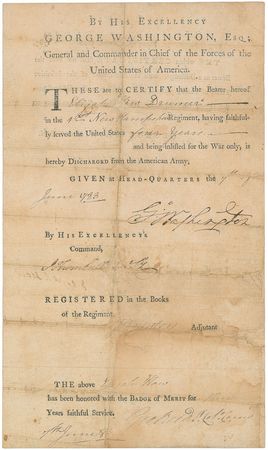 BY HIS EXCELLENCY
GEORGE WASHINGTON, ESQ;
General and Commander in Chief of the Forces of the
United States of America.
THESE are to CERTIFY that the Bearer hereof
Drummer
in the New Hampshire Regiment, having faithful-
ly served the United States four Years
and being inlisted for the War only, is
hereby DISCHARGED from the American Army,
GIVEN at HEAD-QUARTERS the
June 1783
G Washington
BY HIS EXCELLENCY'S
Command,
J Trumbull
REGISTERED in the Books
of the Regiment,
Adjutant
THE above
has been honored with the BADGE of MERIT for
Years faithful Service.